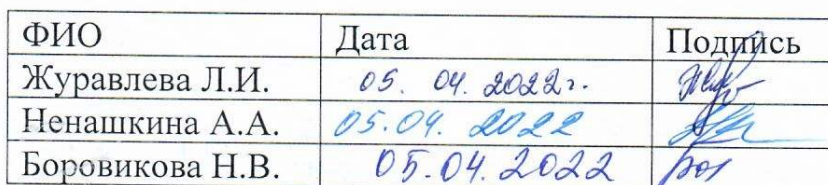 ФИО Дата Подпись
Журавлева Л.И. 05. 04. 2022г.
Ненашкина А.А. 05.04. 2022
Боровикова Н.В. 05.04.2022